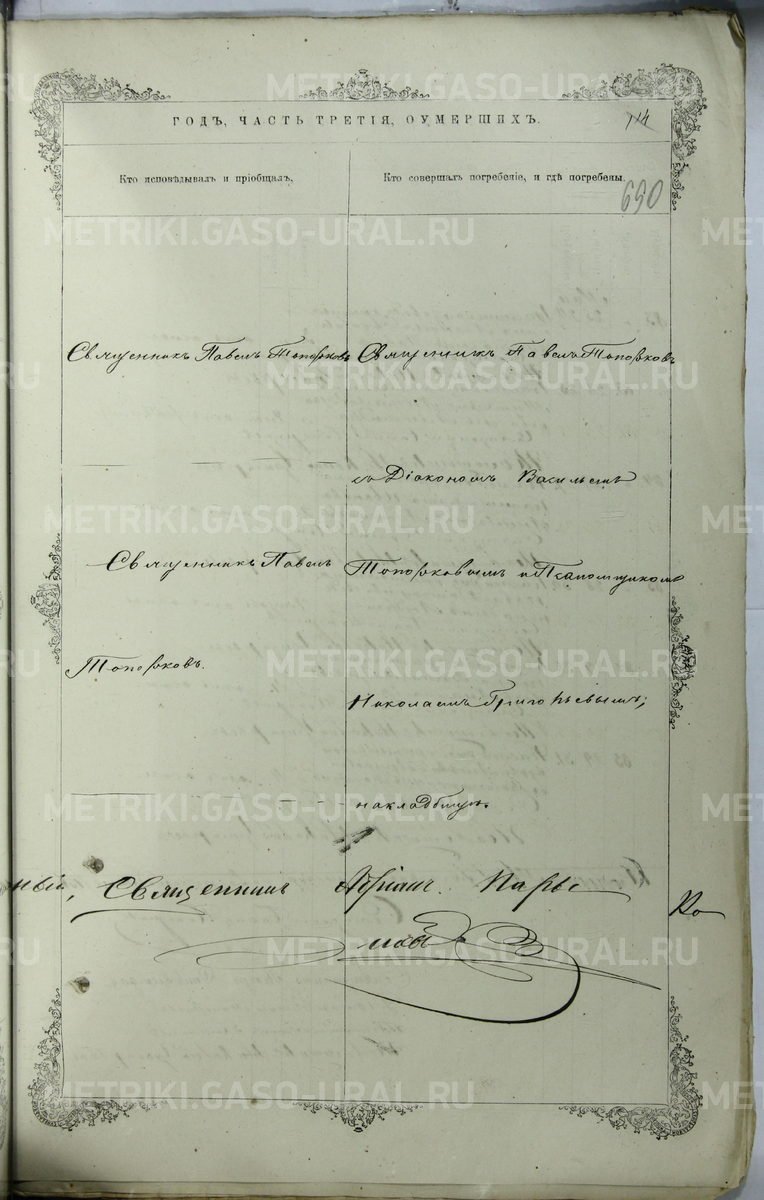 ГОДЪ, ЧАСТЬ ТРЕТІЯ, О УМЕРШИХЪ.
114
Кто исповѣдывалъ и пріобщалъ.
Кто совершалъ погребеніе, и гдѣ погребены.
690
Священникъ Павелъ Топорковъ
Священникъ Павелъ Топорковъ
съ Діакономъ Васильемъ
Священникъ Павелъ
Топорковымъ и Псаломщикомъ
Топорковъ.
Николаемъ Григорьевымъ;
на кладбищѣ.
Священникъ
METRIKI.GASO-URAL.RU